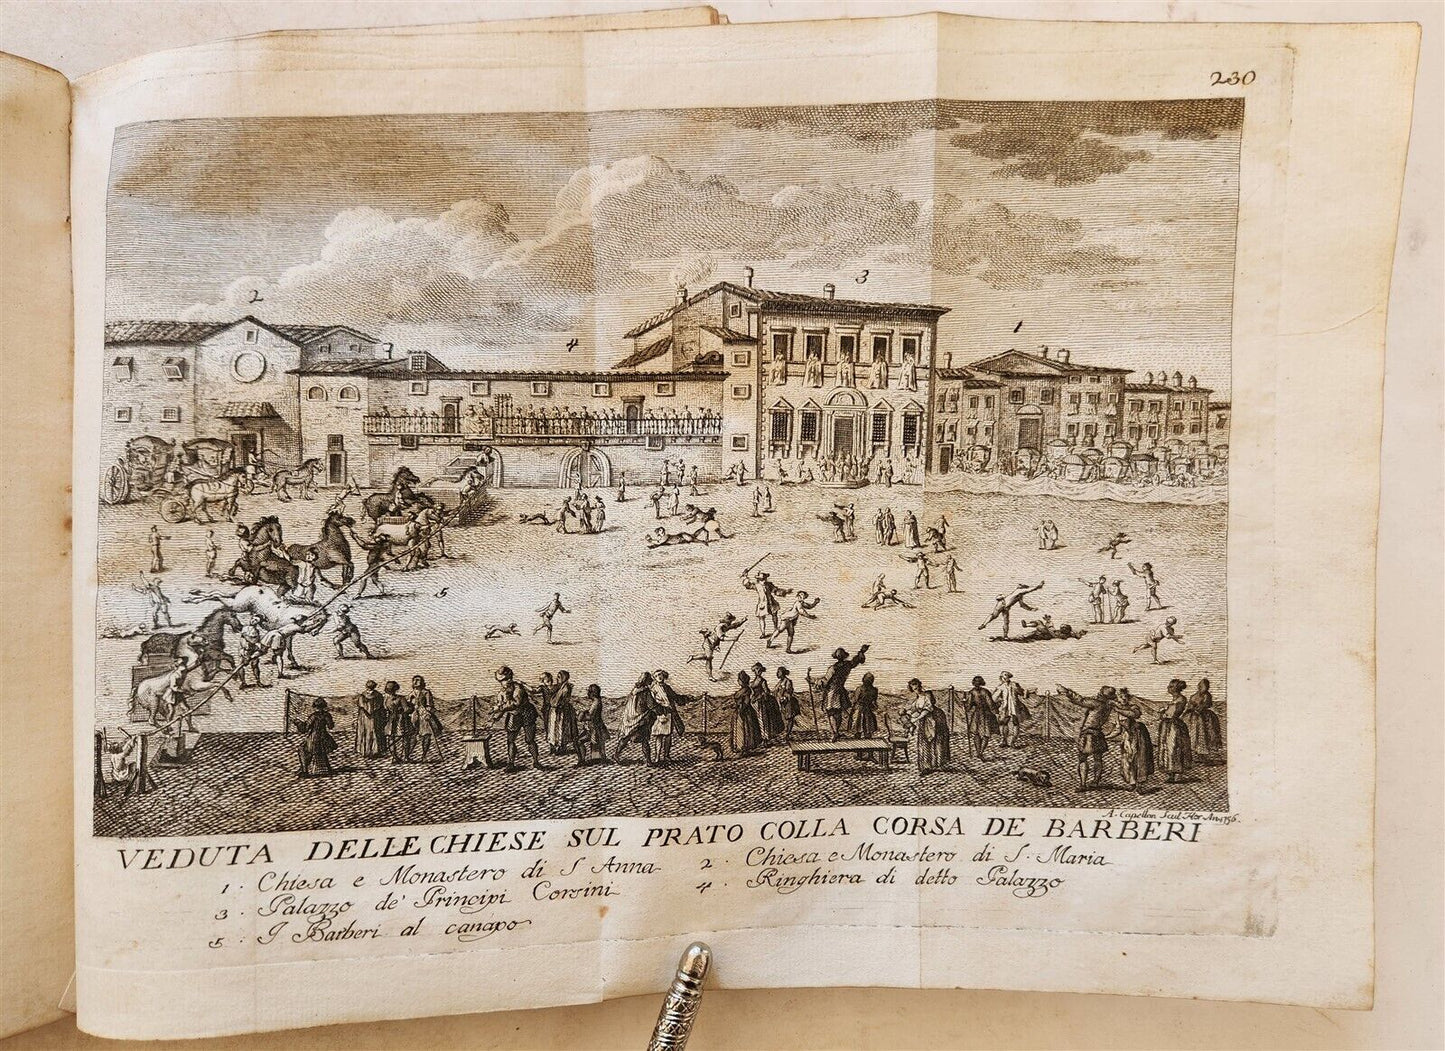 230
2
3
1
4
5
A. Capellan Scul. Flor. An. 1756.
VEDUTA DELLE CHIESE SUL PRATO COLLA CORSA DE BARBERI
1. Chiesa e Monastero di S Anna
2. Chiesa e Monastero di S. Maria
3. Palazzo de' Principi Corsini
4. Ringhiera di detto Palazzo
5. I Barberi al canapo